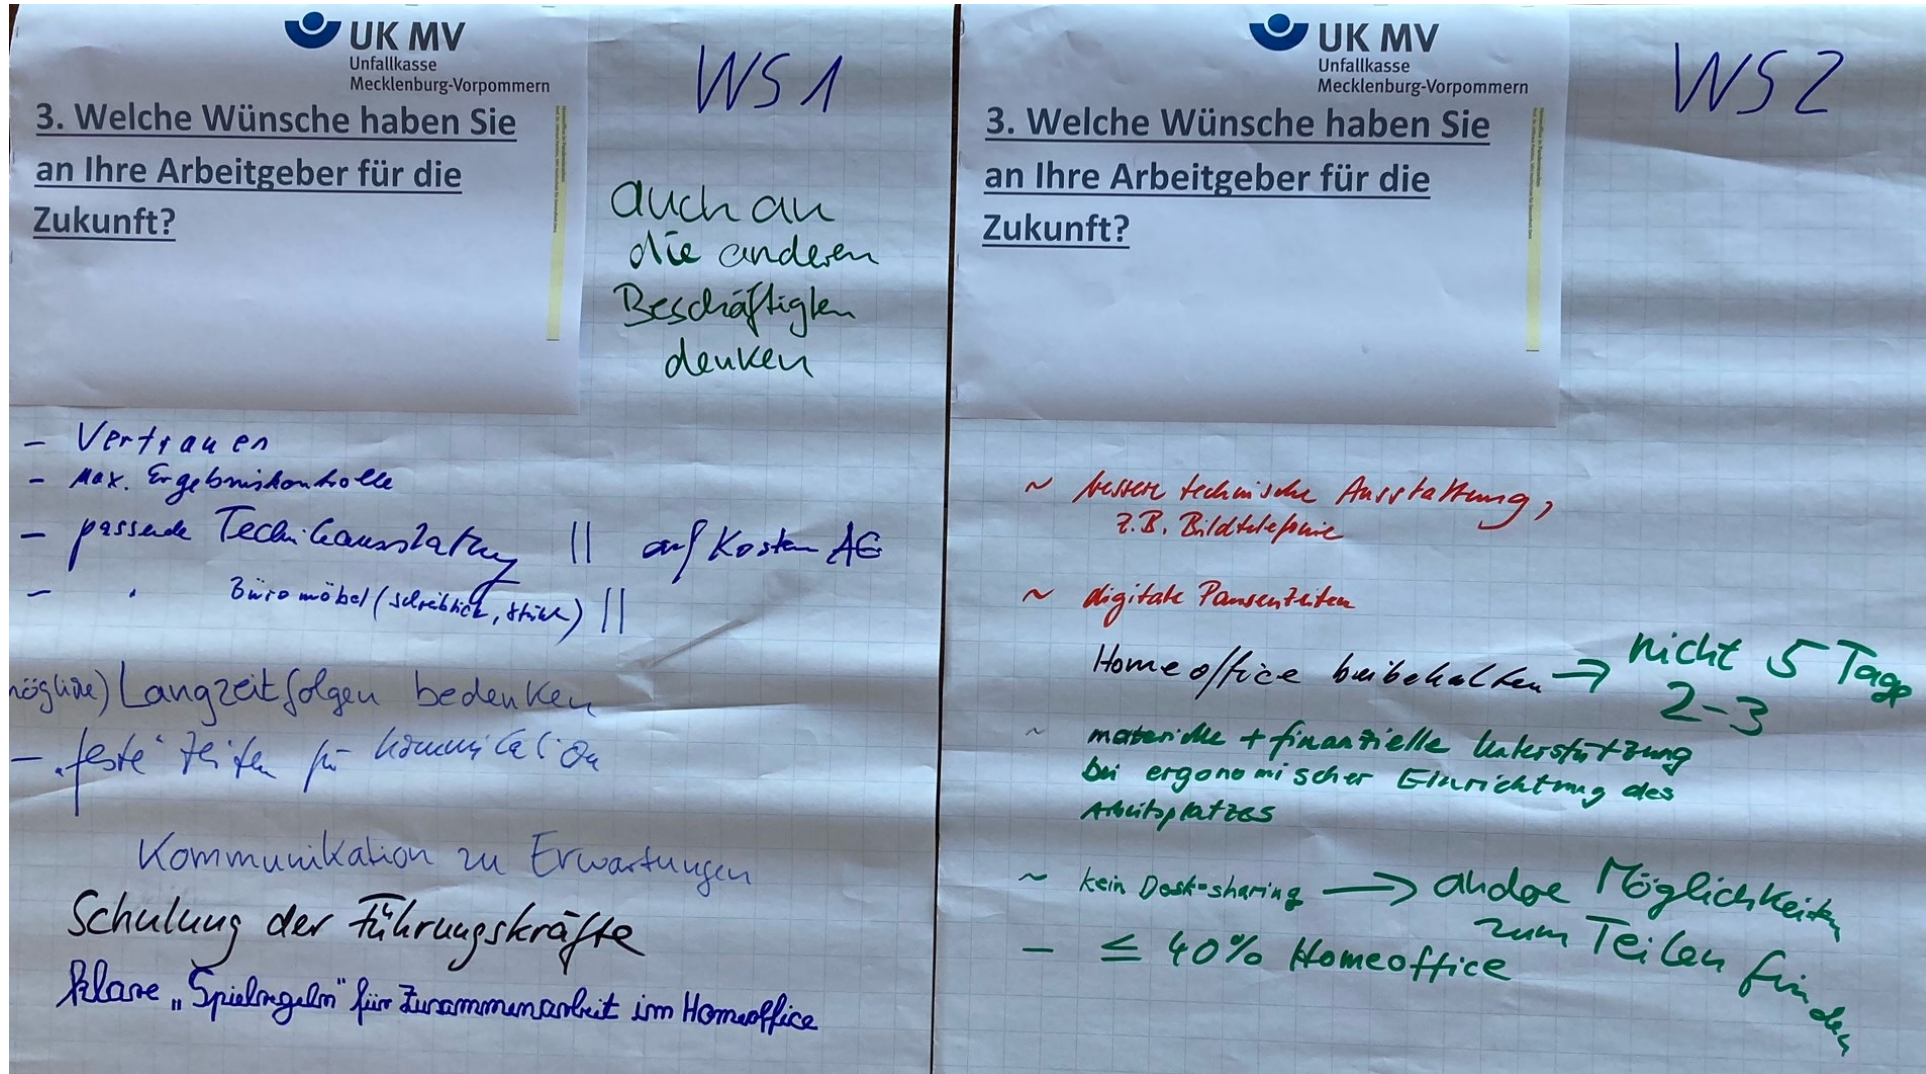 UK MV
Unfallkasse
Mecklenburg-Vorpommern
WS 1
3. Welche Wünsche haben Sie
an Ihre Arbeitgeber für die
Zukunft?
auch an
die anderen
Beschäftigten
denken
- Vertrauen
- Max. Ergebniskontrolle
- passende Technikausstattung || auf Kosten AG
- " Büromöbel (Schreibtisch, Stuhl) ||
mögliche) Langzeitfolgen bedenken
- „feste" Zeiten für Kommunikation
Kommunikation zu Erwartungen
Schulung der Führungskräfte
klare „Spielregeln" für Zusammenarbeit im Homeoffice
UK MV
Unfallkasse
Mecklenburg-Vorpommern
WS 2
3. Welche Wünsche haben Sie
an Ihre Arbeitgeber für die
Zukunft?
~ bessere technische Ausstattung,
z.B. Bildtelefonie
~ digitale Pausenzeiten
Homeoffice beibehalten → nicht 5 Tage
2-3
~ materielle + finanzielle Unterstützung
bei ergonomischer Einrichtung des
Arbeitsplatzes
~ kein Desk-sharing → andere Möglichkeiten
zum Teilen finden
- ≤ 40% Homeoffice